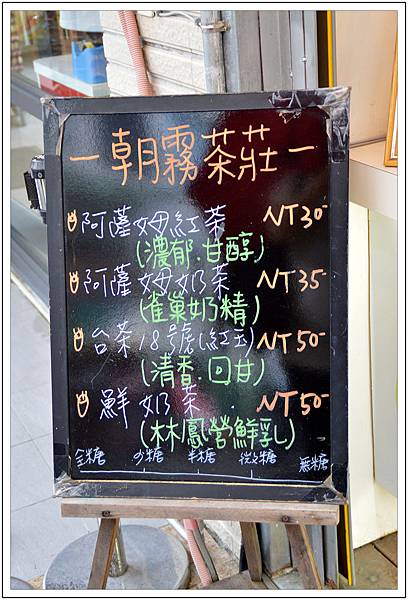 －朝霧茶莊－
阿薩姆紅茶 NT30
(濃郁.甘醇)
阿薩姆奶茶 NT35
(雀巢奶精)
台茶18號(紅玉) NT50
(清香.回甘)
鮮奶茶 NT50
(林鳳營鮮乳)
全糖 少糖 半糖 微糖 無糖